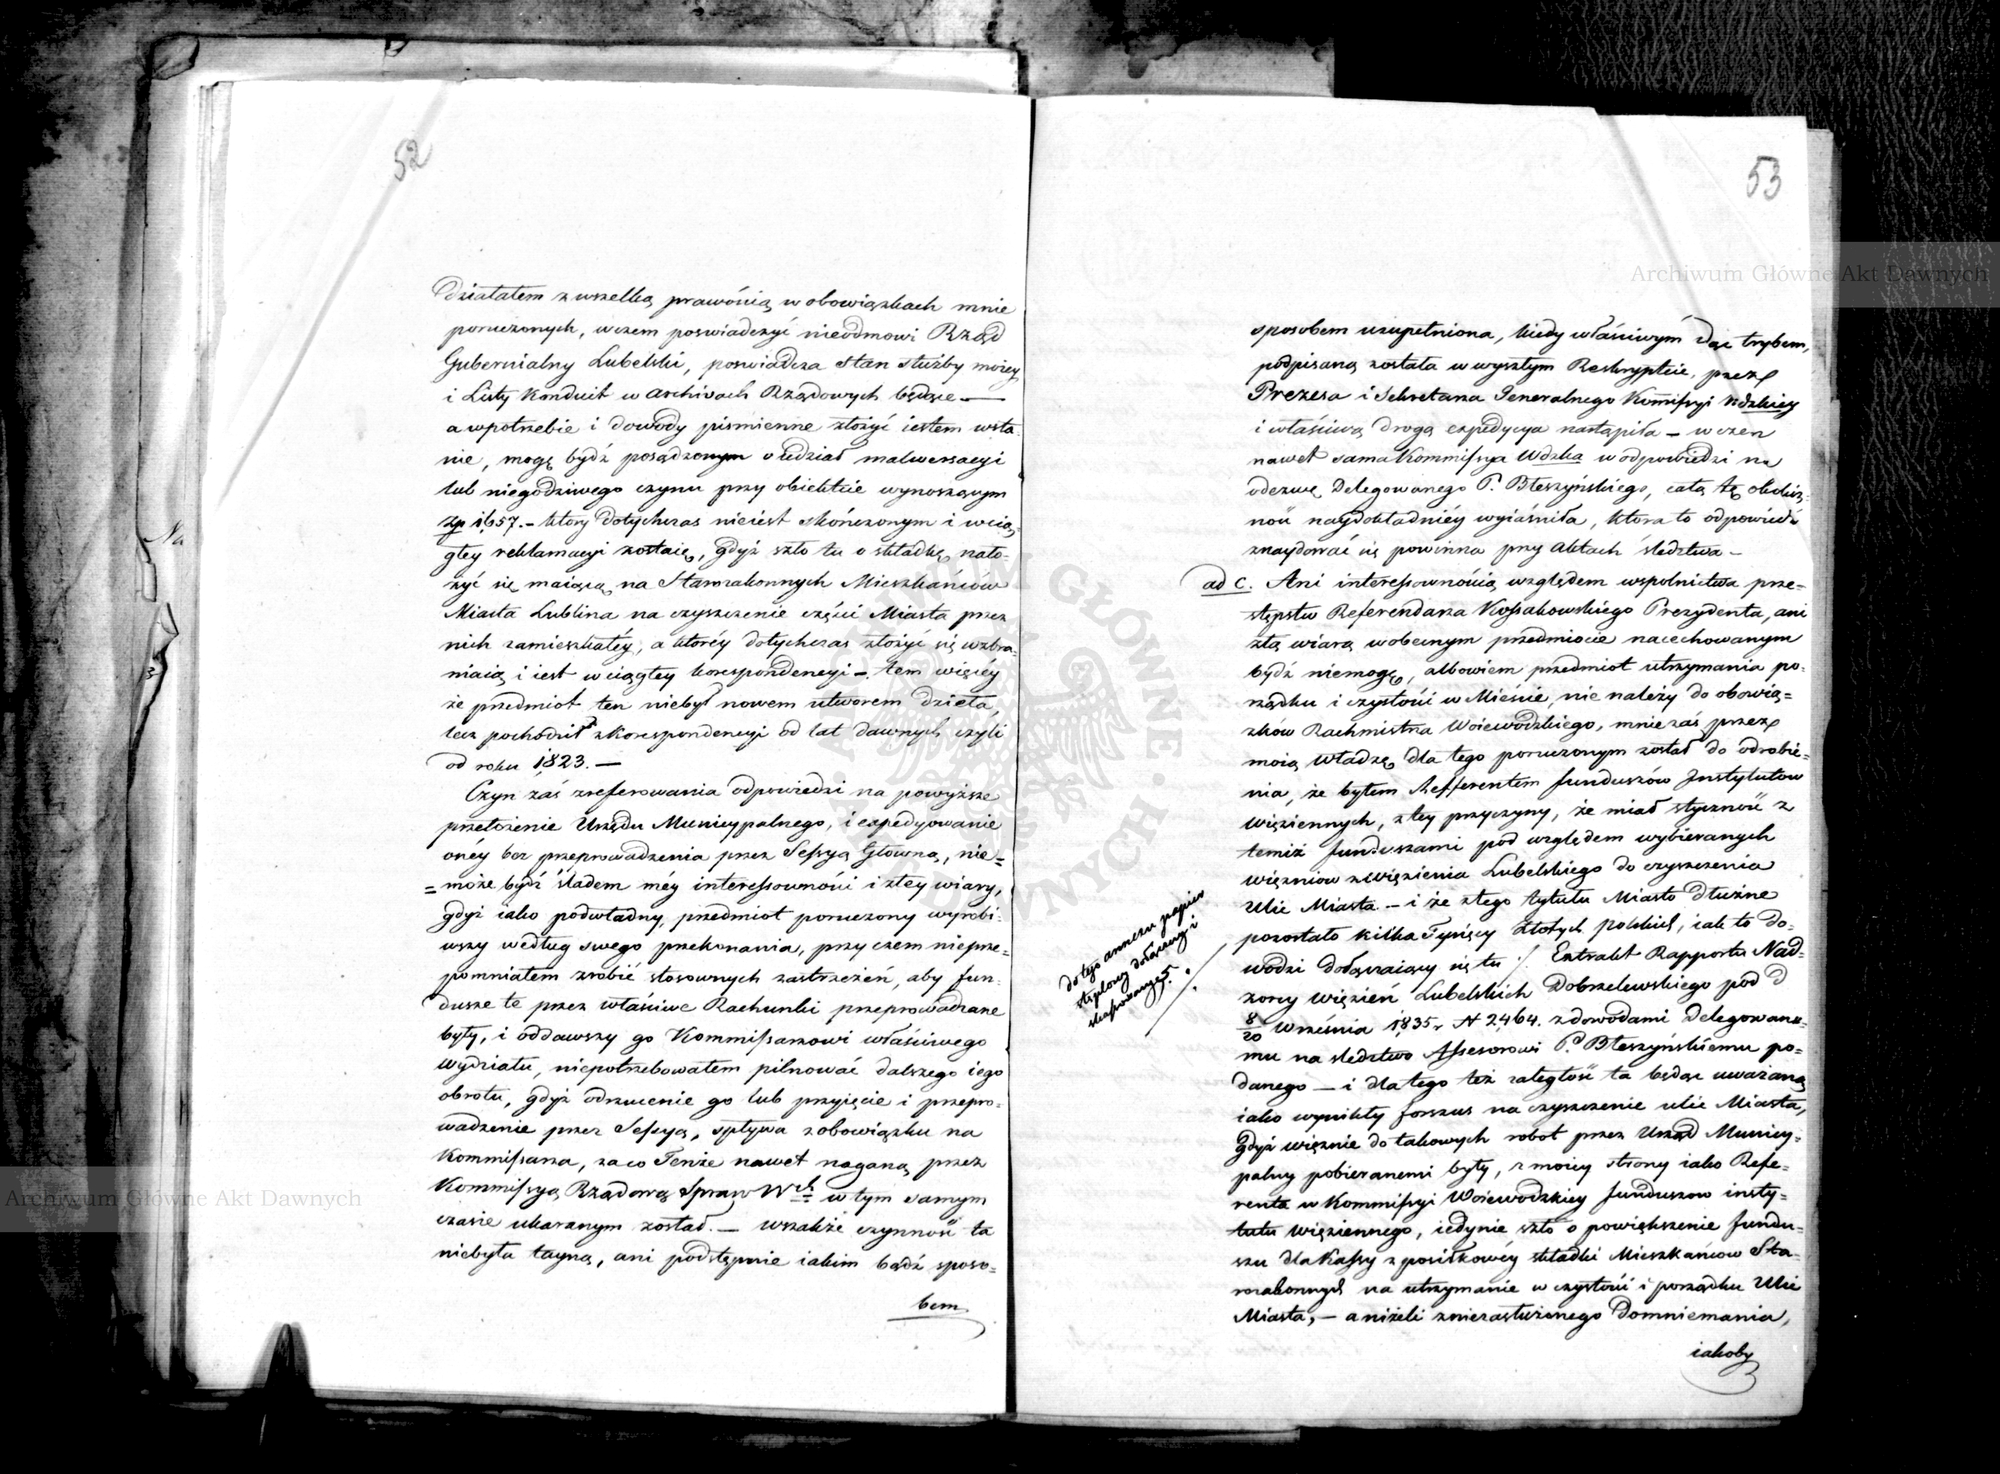 52
Działałem z wszelką prawością w obowiązkach mnie
poruczonych, wczem poswiadczyć nieodmowi Rząd
Gubernialny Lubelski, poswiadcza Stan służby moiey
i Listy Konduit w archivach Rządowych będące —
a wpotrzebie i dowody piśmienne złożyć iestem wsta-
nie, mogę bydź posądzonym o udział malwersacyi
lub niegodziwego czynu przy obiekcie wynoszącym
zp 1657. – który dotychczas nieiest skończonym i wcią-
głey reklamacyi zostaie, gdyż szło tu o składkę nało-
żyć się maiącą na Starozakonnych Mieszkańców
Miasta Lublina na czyszczenie części Miasta przez
nich zamieszkałéy, a któréy dotychczas złożyć się wzbra-
niaią i iest w ciągłey korespondencyi – tem więcéy
że przedmiot ten niebył nowem utworem dzieła,
lecz pochodził z korespondencyi od lat dawnych czyli
od roku 1823. —
Czyn zaś zreferowania odpowiedzi na powyższe
przełożenie Urzędu Municypalnego, i expedyowanie
onéy bez przeprowadzenia przez Sessyą Główną, nie=
=może bydź śladem méy interessowności i złey wiary,
gdyż iako podwładny, przedmiot poruczony wyrobi-
wszy według swego przekonania, przyczem nieprze-
pomniałem zrobić stosownych zastrzeżeń, aby fun-
dusze te przez właściwe Rachunki przeprowadzane
były, i oddawszy go Kommissarzowi właściwego
wydziału, niepotrzebowałem pilnować dalszego iego
obrotu, gdyż odrzucenie go lub przyięcie i przepro-
wadzenie przez Sessyą, spływa z obowiązku na
Kommissarza, zaco Tenże nawet naganą przez
Kommissyą Rządową Spraw Wch w tym samym
czasie ukaranym został. — wszakże czynność ta
niebyła tayną, ani podstępnie iakim bądź sposo-
bem
53
sposobem uzupełniona, kiedy właściwym idąc trybem,
podpisaną została w wyszłym Reskrypcie, przez
Prezesa i Sekretarza Generalnego Kommissyi Wdzkiey
i właściwą drogą expedycya nastąpiła – w czem
nawet sama Kommissya Wdzka w odpowiedzi na
odezwę Delegowanego P. Błeszyńskiego, całą tę okolicz-
ność naydokładniéy wyiaśniła, która to odpowiedź
znaydować się powinna przy aktach śledztwa –
ad C. Ani interessownością względem wspolnictwa prze-
stępstw Referendarza Kossakowskiego Prezydenta, ani
złą wiarą w obecnym przedmiocie nacechowanym
bydź niemogę, albowiem przedmiot utrzymania po-
rządku i czystości w Mieście, nie należy do obowią-
zków Rachmistrza Woiewódzkiego, mnie zaś przez
moią władzę dla tego poruczonym został do odrobie-
nia, że byłem Refferentem funduszów Instytutow
więziennych, z tey przyczyny, że miał styczność z
temiż funduszami pod względem wybieranych
więzniow z więzienia Lubelskiego do czyszczenia
Ulic Miasta. – i że z tego tytułu Miasto dłużne
pozostało kilka Tysięcy Złotych polskich, iak to do-
wodzi dołączaiący się tu ·/. Extrakt Rapportu Nad-
zorcy więzień Lubelskich Dobrzelewskiego pod d
8/20 września 1835 r N 2464. z dowodami Delegowane-
mu na śledztwo Assessorowi P. Błeszyńskiemu po-
danego — i dla tego też zaległość ta będąc uważaną
iako wynikły forszus na czyszczenie ulic Miasta,
gdyż więznie do takowych robot przez Urząd Municy-
palny pobieranemi były, z moiey strony iako Refe-
renta w Kommissyi Woiewodzkiey funduszow insty-
tutu więziennego, iedynie szło o powiększenie fundu-
szu dla Kassy z posiłkowey składki Mieszkańcow Sta-
rozakonnych na utrzymanie w czystości i porządku Ulic
Miasta, — aniżeli z niezasłużonego domniemania,
iakoby
do tego annexu papier
stęplowy dołączony i
skassowany
·/.
Na
Archiwum Główne Akt Dawnych
Archiwum Główne Akt Dawnych